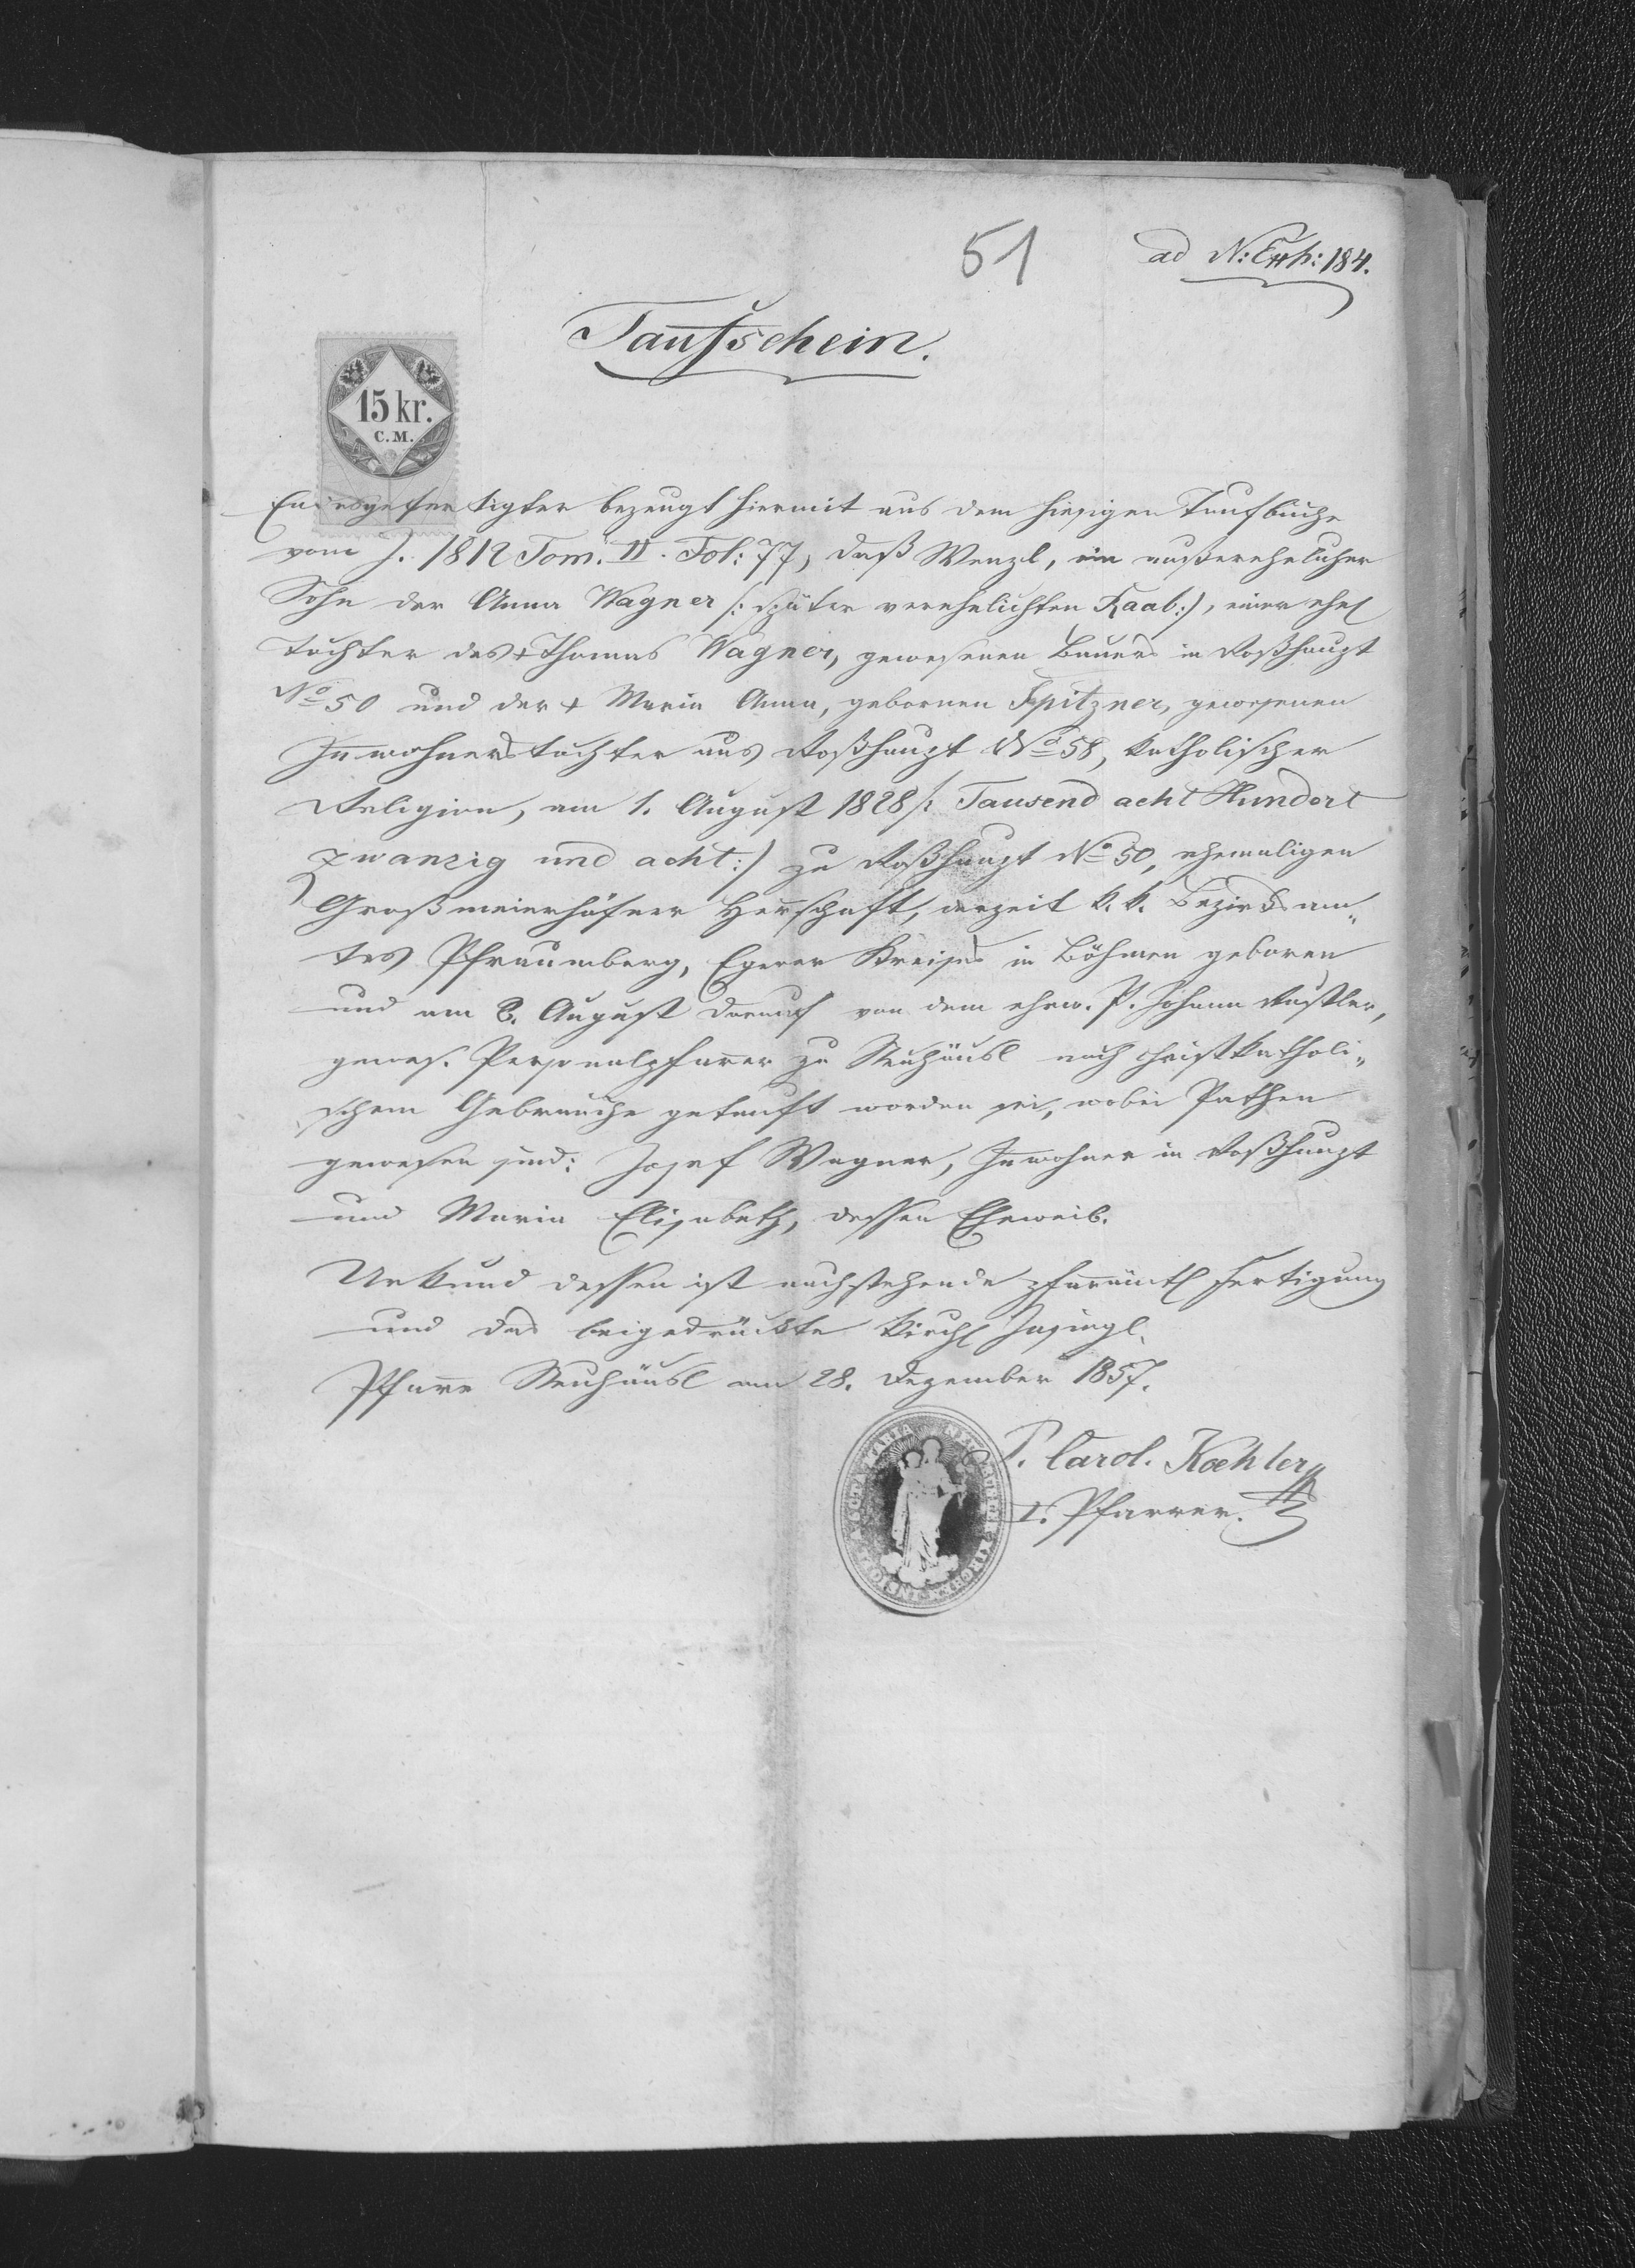 51
ad N: Exh: 184.
Taufschein.
15 kr.
C.M.
Endesgefertigter bezeugt hiermit aus dem hiesigen Taufbuche
vom J. 1812 Tom. II. Fol: 77, daß Wenzl, ein außerehelicher
Sohn der Anna Wagner /: später verehelichten Raab :/, einer ehel
Tochter des + Thomas Wagner, gewesenen Bauers in Roßhaupt
No 50 und der + Maria Anna, gebornen Spitzner, gewesenen
Inwohnerstochter aus Roßhaupt No 58, katholischer
Religion, am 1. August 1828 /: Tausend acht Hundert
zwanzig und acht :/ zu Roßhaupt No 50, ehemaligen
Großmeierhöfner Herrschaft, derzeit k. k. Bezirksam„
tes Pfraumberg, Egerer Kreises in Böhmen geboren
und am 2. August darauf von dem ehrw. P. Johann
gewes. Personalpfarrer zu Neuhäusl nach christkatholi„
schem Gebrauche getauft worden sei, wobei Pathen
gewesen sind: Josef Wagner, Inwohner in Roßhaupt
und Maria Elisabeth, dessen Eheweib.
Urkund dessen ist nachstehende pfarrämtl Fertigung
und das beigedrückte kirchl Insiegl.
Pfarre Neuhäusl am 28. Dezember 1857.
P. Carol. Koehler
Pfarrer.